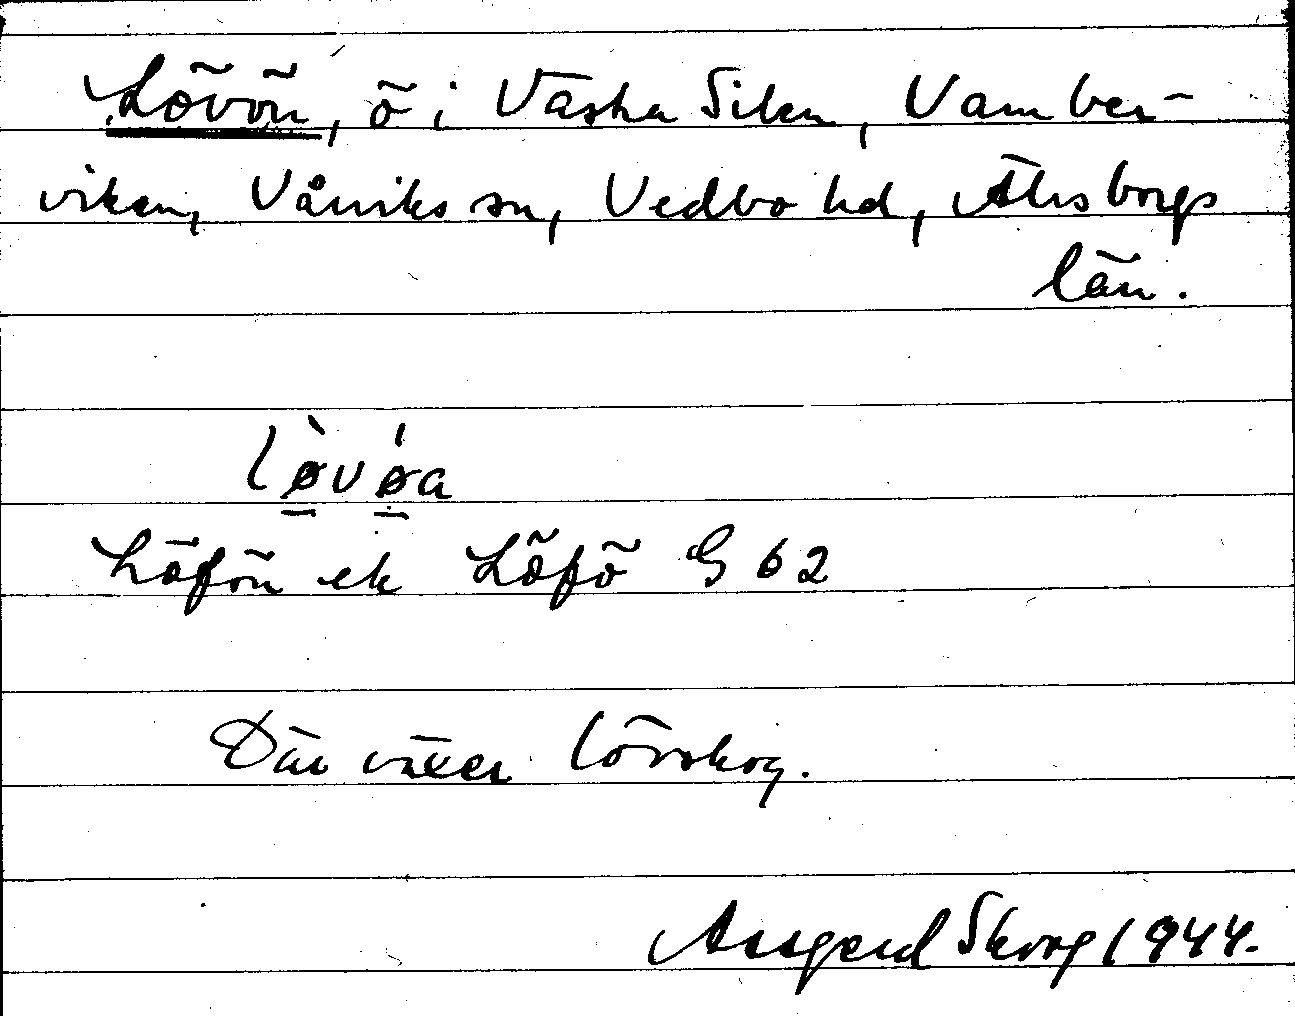 Lövön, ö i Västra Silen, Vamber-
viken, Vårviks sn, Vedbo hd, Älvsborgs
län.
lø̀vǿa
Löfön ek Löfö G 62
Där växer lövskog.
Assgerd Skoog 1944.